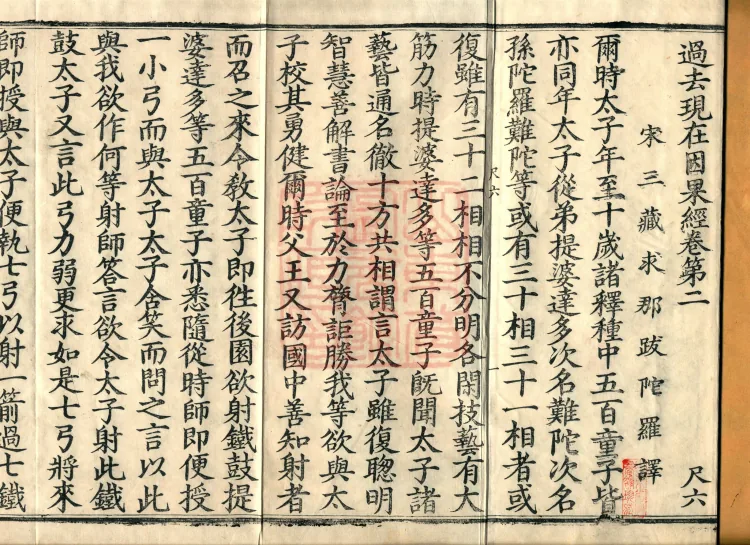 過去現在因果經卷第二 尺六
宋三藏求那跋陀羅譯
爾時太子年至十歲諸釋種中五百童子皆
亦同年太子從弟提婆達多次名難陀次名
孫陀羅難陀等或有三十相三十一相者或
尺六 一
復雖有三十二相相不分明各閑技藝有大
筋力時提婆達多等五百童子旣聞太子諸
藝皆通名徹十方共相謂言太子雖復聰明
智慧善解書論至於力膂詎勝我等欲與太
子校其勇健爾時父王又訪國中善知射者
而召之來令教太子即往後園欲射鐵鼓提
婆達多等五百童子亦悉隨從時師即便授
一小弓而與太子太子含笑而問之言以此
與我欲作何等射師答言欲令太子射此鐵
鼓太子又言此弓力弱更求如是七弓將來
師即授與太子便執七弓以射一箭過七鐵